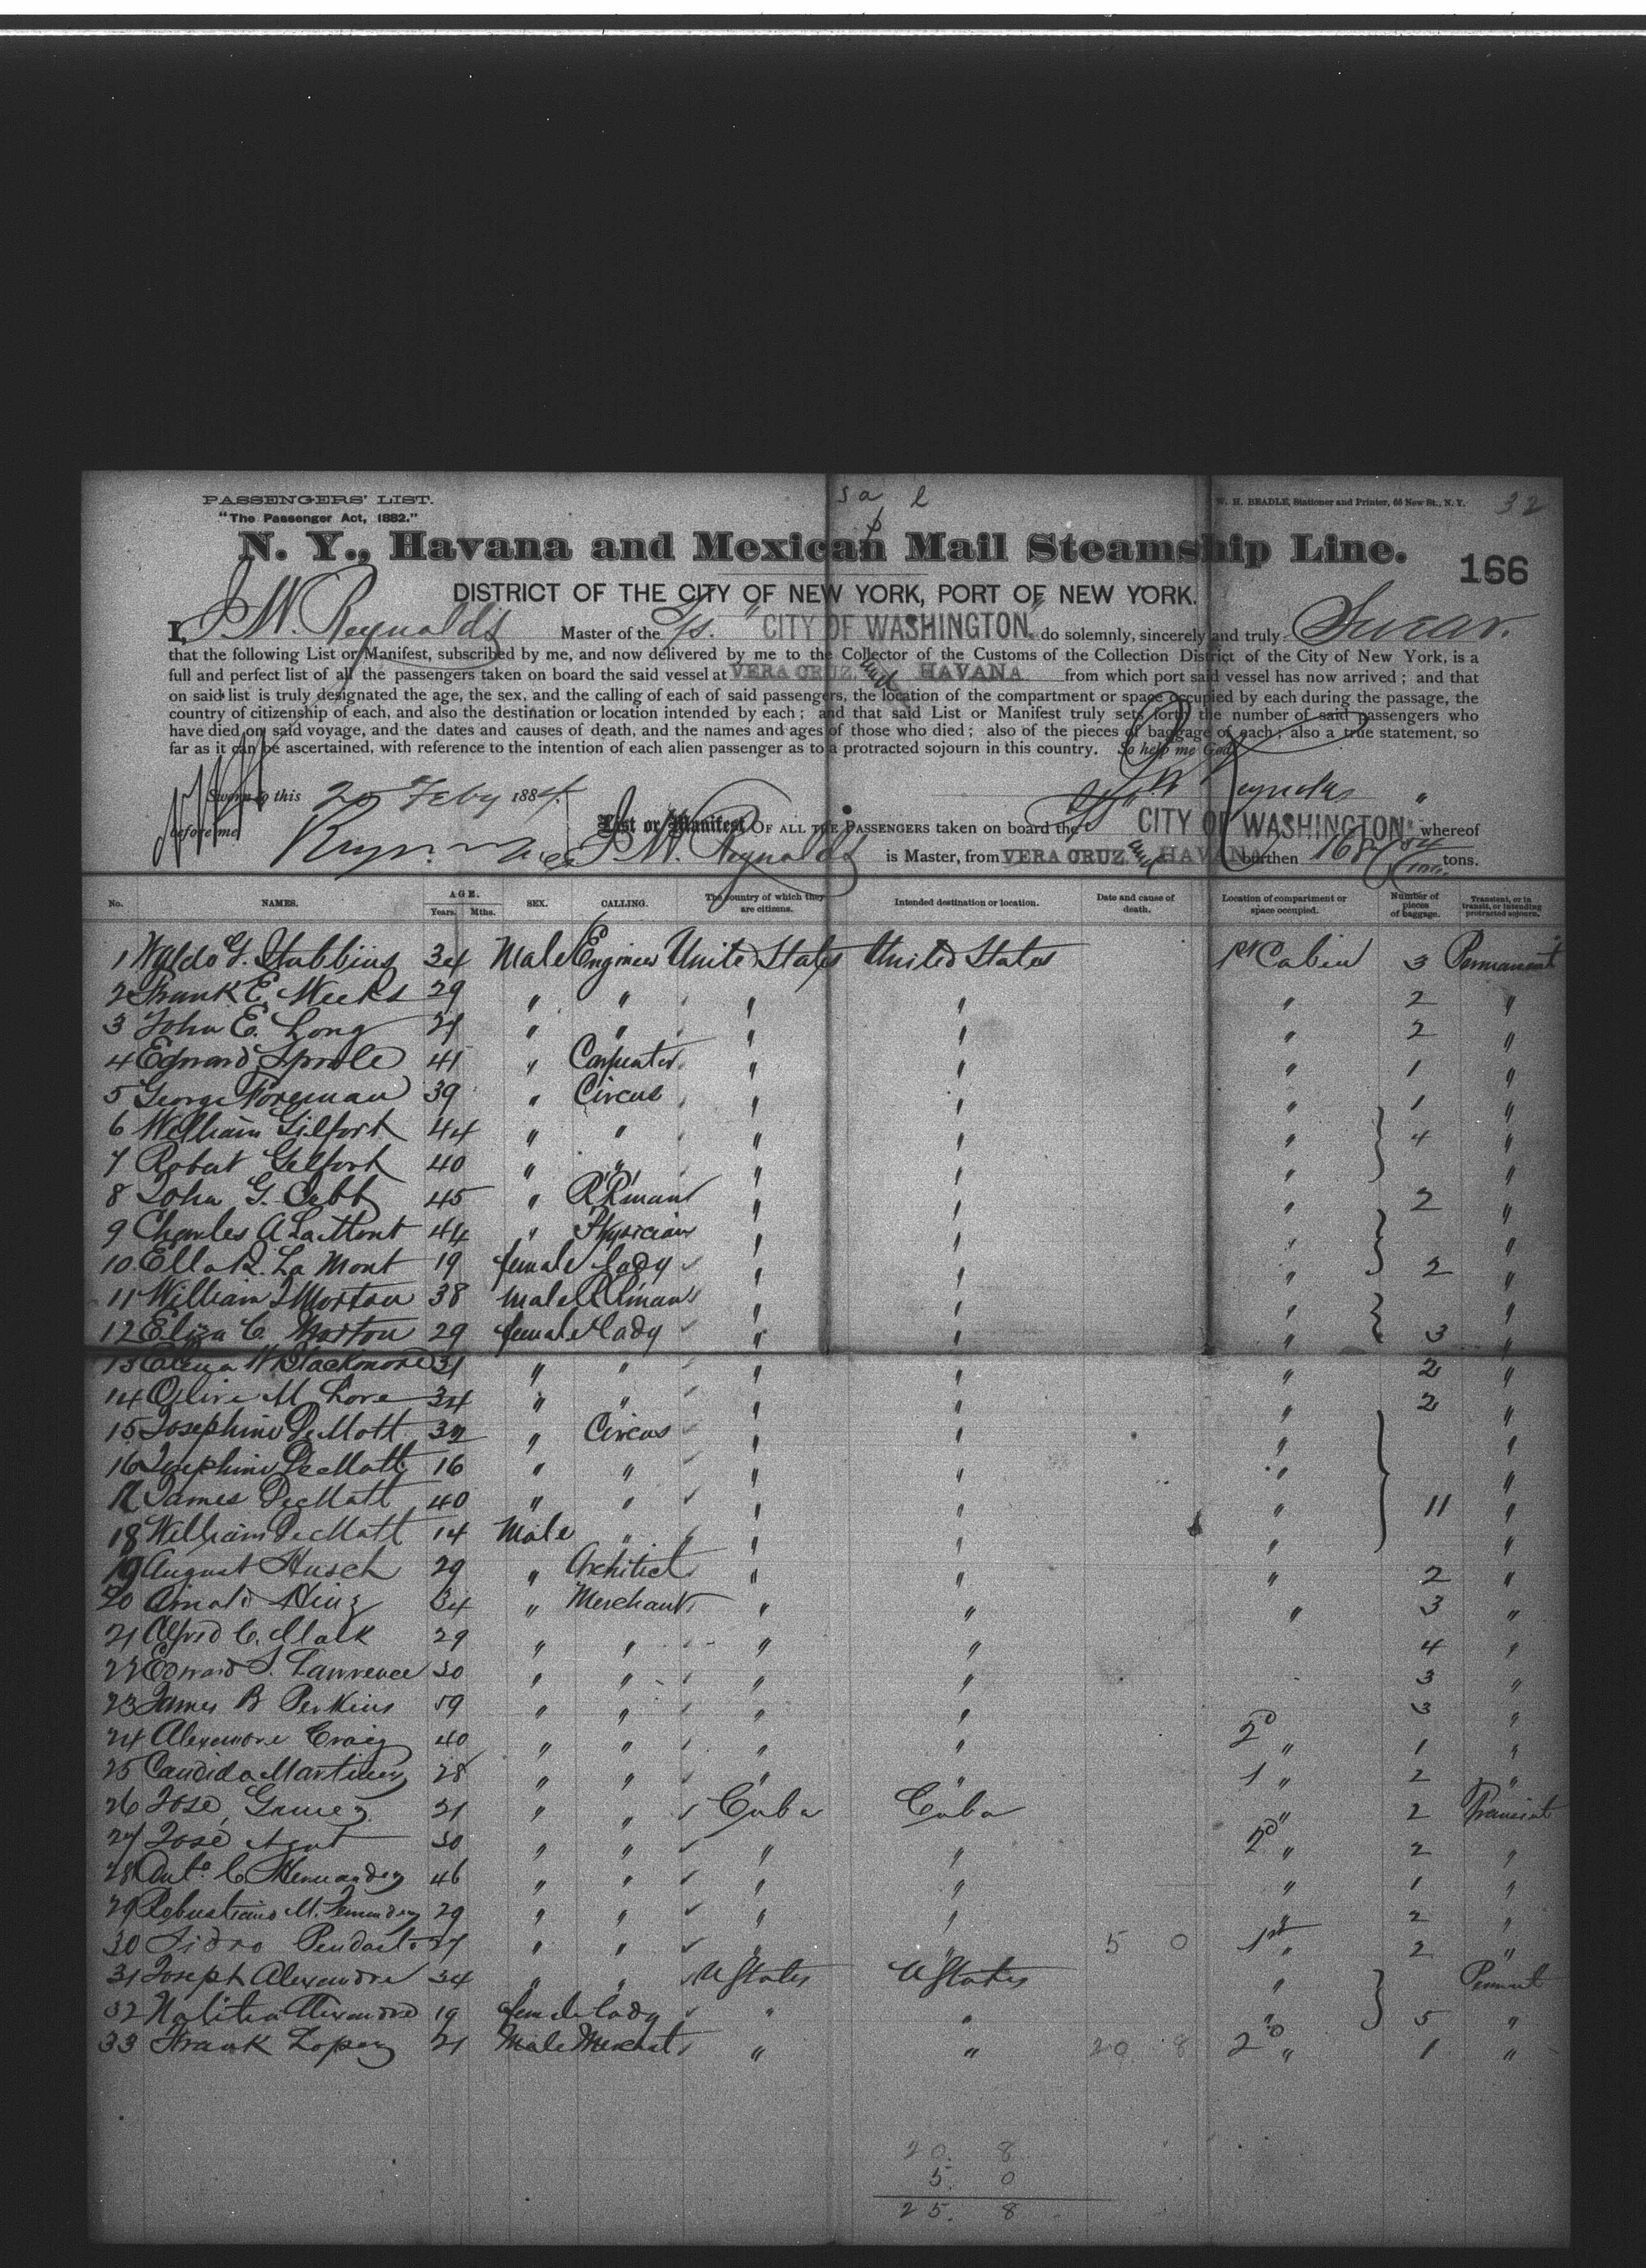 PASSENGERS' LIST.
"The Passenger Act, 1882."
W. H. BEADLE, Stationer and Printer, 66 New St., N. Y.
32
N. Y., Havana and Mexican Mail Steamship Line.
166
DISTRICT OF THE CITY OF NEW YORK, PORT OF NEW YORK.
I, J W. Reynolds Master of the "CITY OF WASHINGTON" do solemnly, sincerely and truly Swear.
that the following List or Manifest, subscribed by me, and now delivered by me to the Collector of the Customs of the Collection District of the City of New York, is a
full and perfect list of all the passengers taken on board the said vessel at VERA CRUZ and HAVANA from which port said vessel has now arrived; and that
on said list is truly designated the age, the sex, and the calling of each of said passengers, the location of the compartment or space occupied by each during the passage, the
country of citizenship of each, and also the destination or location intended by each; and that said List or Manifest truly sets forth the number of said passengers who
have died on said voyage, and the dates and causes of death, and the names and ages of those who died; also of the pieces of baggage of each; also a true statement, so
far as it can be ascertained, with reference to the intention of each alien passenger as to a protracted sojourn in this country. So help me God
Sworn to this 25 Feby 1884.
before me
List or Manifest OF ALL THE PASSENGERS taken on board the "CITY OF WASHINGTON" whereof
J W. Reynolds is Master, from VERA CRUZ and HAVANA burthen tons.
No. NAMES. AGE. Years. Mths. SEX. CALLING. The country of which they are citizens. Intended destination or location. Date and cause of death. Location of compartment or space occupied. Number of pieces of baggage. Transient, or in transit, or intending protracted sojourn.
1 Waldo G. Stubbins 34 Male Engineer United States United States 1st Cabin 3 Permanent
2 Frank E. Weeks 29 " " " " " 2 "
3 John E. Long 27 " " " " " 2 "
4 Edward Sproole 41 " Carpenter " " " 1 "
5 George Foreman 39 " Circus " " " 1 "
6 William Gilfort 44 " " " " " 4 "
7 Robert Gilfort 40 " " " " " "
8 John G. Cobb 45 " R R man " " " 2 "
9 Charles A La Mont 44 " Physician " " " "
10 Ella R. La Mont 19 female lady " " " 2 "
11 William J Morton 38 male R R man " " " "
12 Eliza C. Morton 29 female lady " " " 3 "
13 W Blackmore 31 " " " " " 2 "
14 Olive M Lore 34 " " " " " 2 "
15 Josephine DeMott 32 " Circus " " " "
16 Josephine DeMott 16 " " " " " "
17 James DeMott 40 " " " " " 11 "
18 William DeMott 14 Male " " " " "
19 August Husch 29 " Architect " " " 2 "
20 34 " Merchant " " " 3 "
21 Alfred C. 29 " " " " 4 "
22 Edward S. Lawrence 30 " " " " 3 "
23 James B Perkins 59 " " " " 3 "
24 Alexandre Craig 40 " " " " 2d " 1 "
25 Candido Martinez 28 " " " " 1 " 2 "
26 José Gomez 21 " " Cuba Cuba " 2 Transient
27 José 30 " " " " 2d " 2 "
28 Anto. C Hernandez 46 " " " " " 1 "
29 Robustiano M. Fernandez 29 " " " " " 2 "
30 Sidro 27 " " " " 5 0 1st " 2 "
31 Joseph Alexandre 34 " " U States U States " Permnt
32 Alexandre 19 female lady " " " 5 "
33 Frank Lopez 21 Male Merchat " " 20 8 2d " 1 "
20. 8
5. 0
25. 8